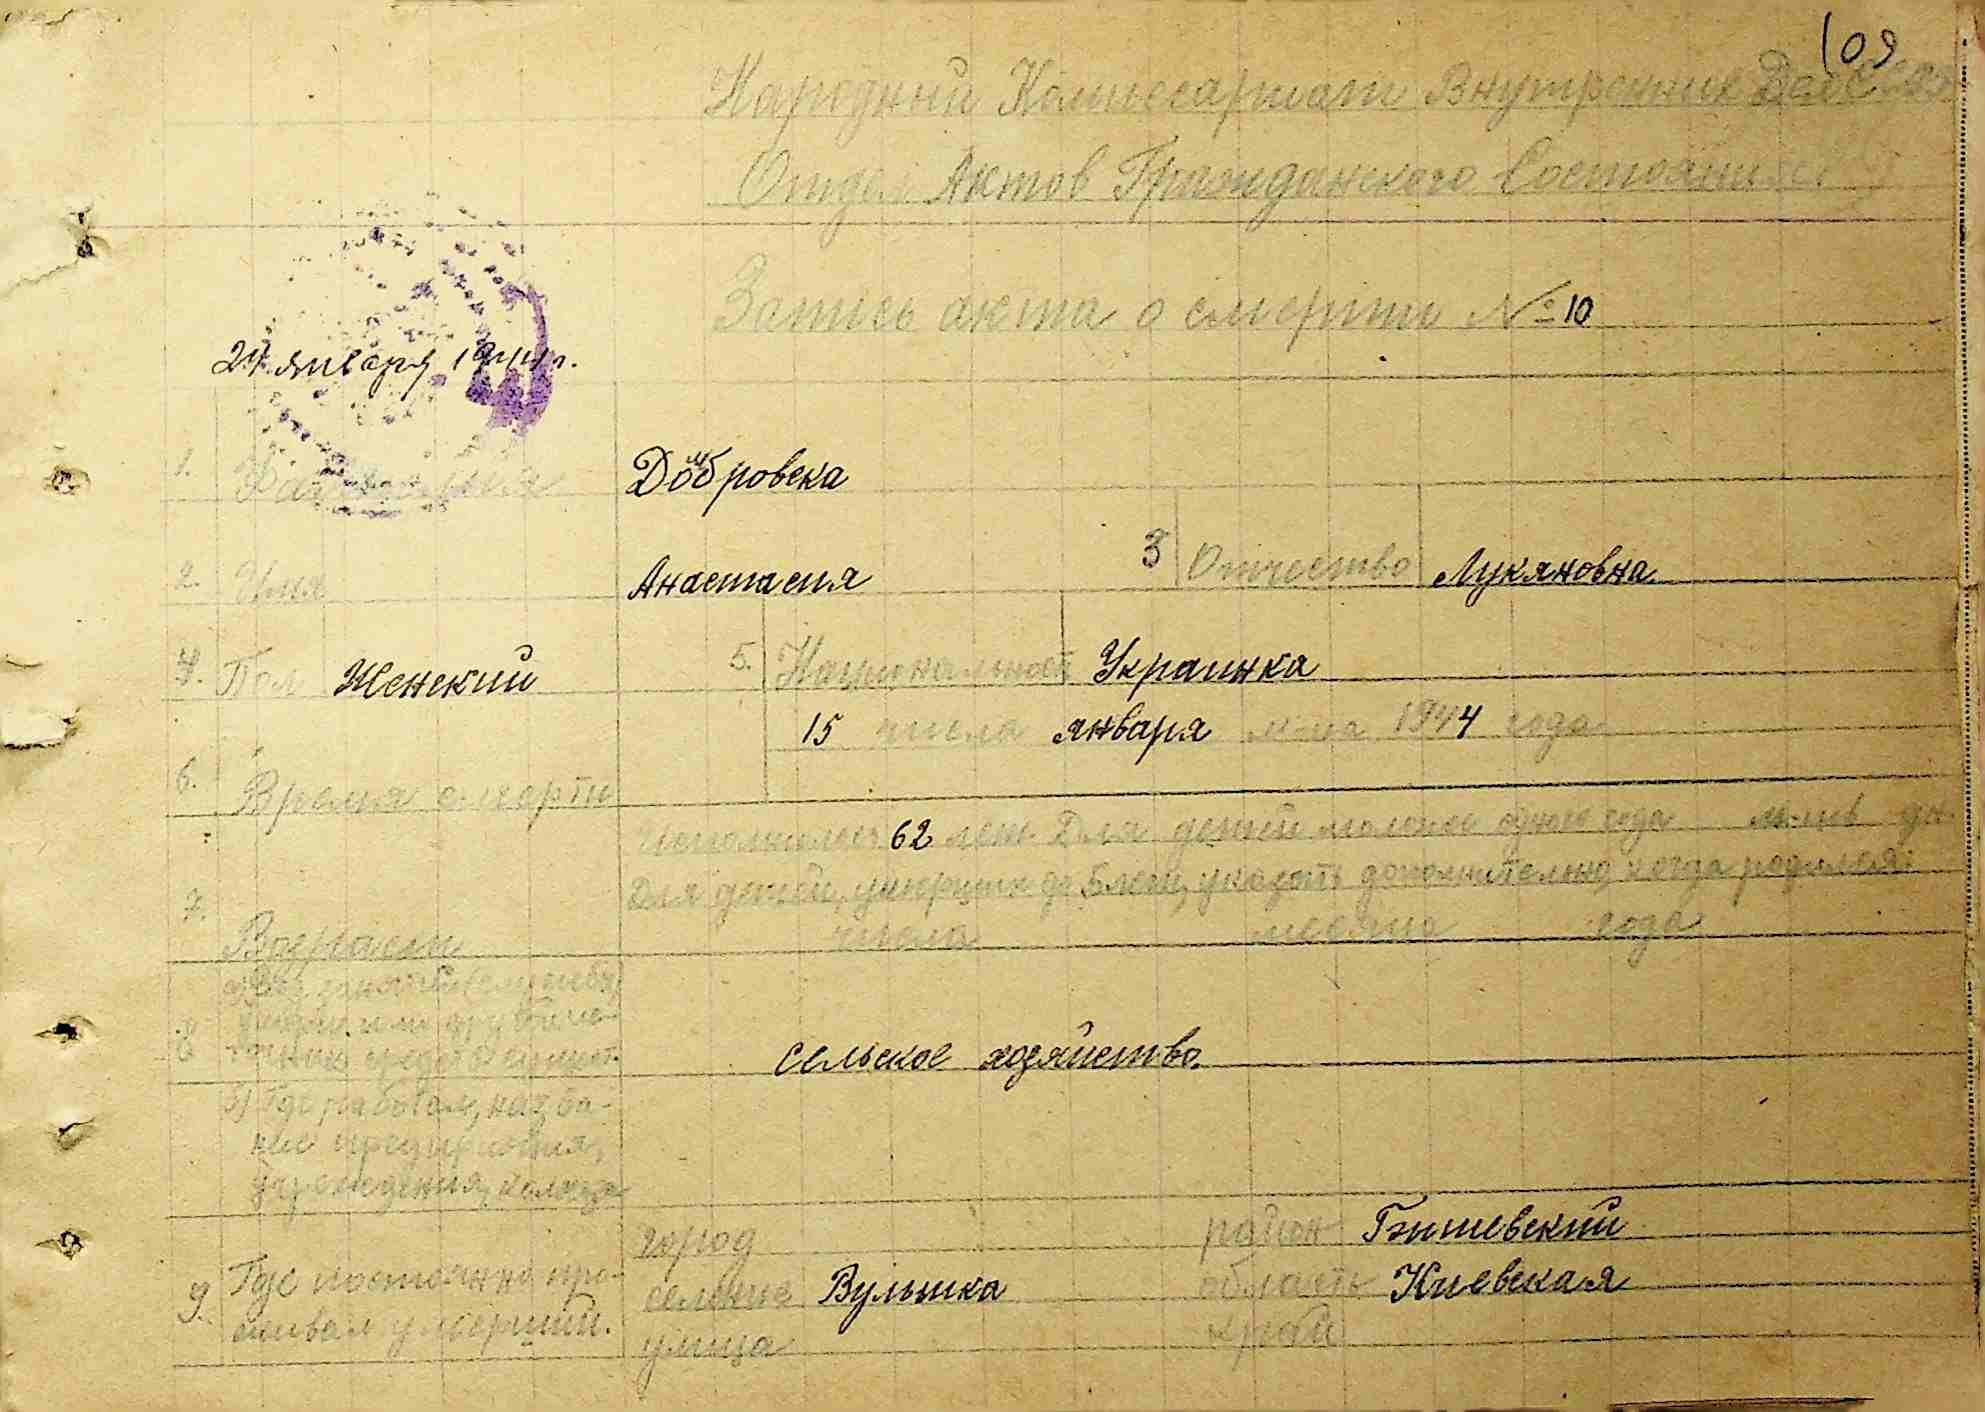 109
Народный Комиссариат Внутренних Дел
Отдел Актов Гражданского Состояния
Запись акта о смерти № 10
24 января 1944 г.
1. Фамилия Домбровска
2. Имя Анастасия 3 Отчество Лукяновна
4. Пол Женский 5. Национальност Украинка
15 числа января м-ца 1944 года
6. Время смерти
Исполнилось 62 лет Для детей моложе одного года м-цев дн.
Для детей, умерших до 5 лет, указать дополнительно, когда родился:
числа месяца года
7. Возраст
8
сельское хозяйство.
б) Где работал, назва-
ние предприятия,
учреждения, колхоза
город район Бышевский
9. Где постоянно про-
селение Вульшка область Киевская
живал умерший.
улица край